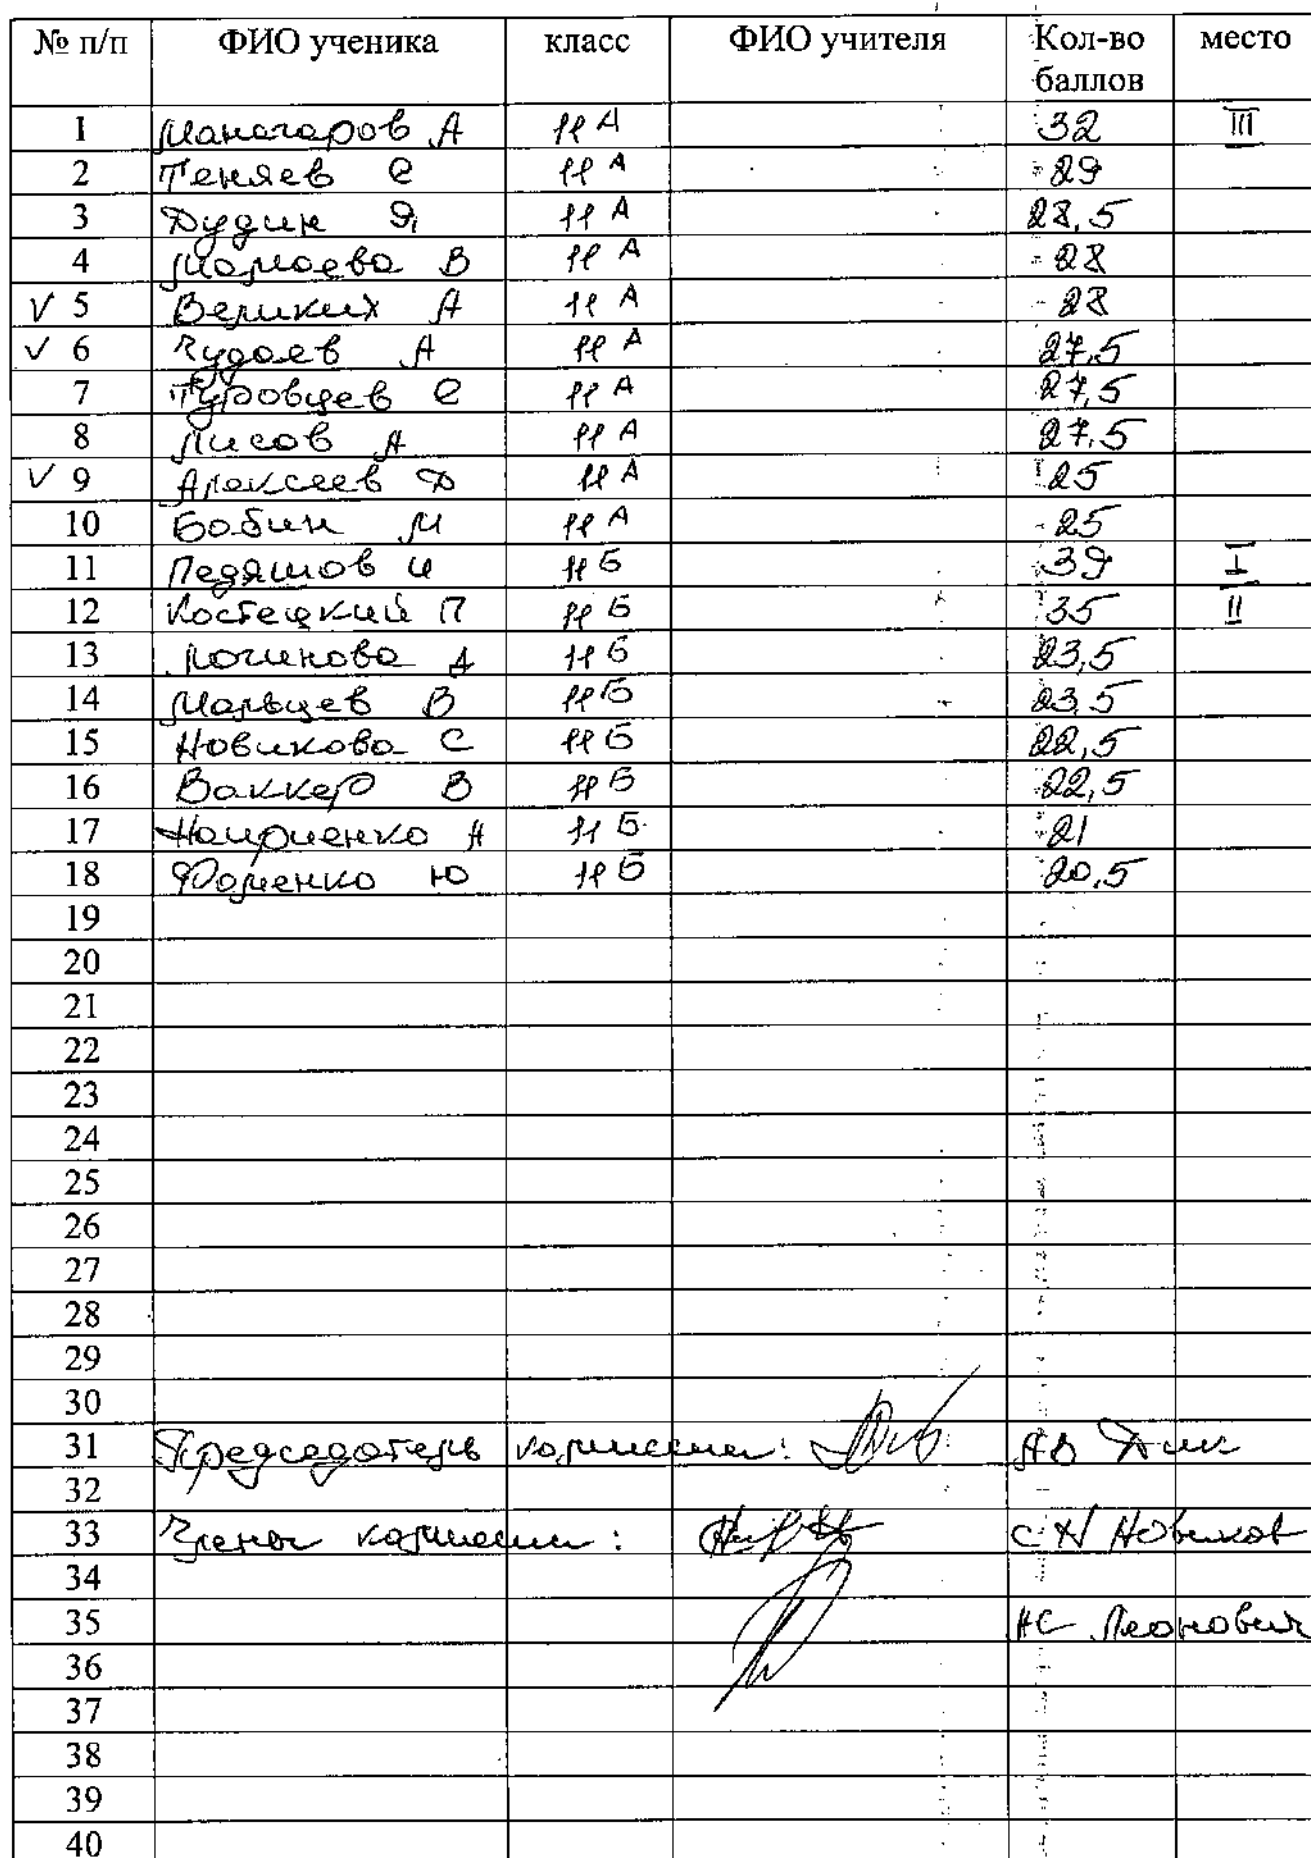 № п/п ФИО ученика класс ФИО учителя Кол-во баллов место
1 Манагаров А 11 А 32 III
2 Теняев С 11 А 29
3 Дудик Я 11 А 28,5
4 Мамаева В 11 А 28
√ 5 Великих А 11 А 28
√ 6 Чудаев А 11 А 27,5
7 Туровцев С 11 А 27,5
8 Лисов А 11 А 27,5
√ 9 Алексеев Д 11 А 25
10 Бабин М 11 А 25
11 Педяшов И 11 Б 39 I
12 Костецкий П 11 Б 35 II
13 Логинова А 11 Б 23,5
14 Мальцев В 11 Б 23,5
15 Новикова С 11 Б 22,5
16 Ваккер В 11 Б 22,5
17 11 Б 21
18 Фоменко Ю 11 Б 20,5
19
20
21
22
23
24
25
26
27
28
29
30
31 Председатель комиссии: АВ Дик
32
33 Члены комиссии: С Н Новиков
34
35 НС Леонович
36
37
38
39
40